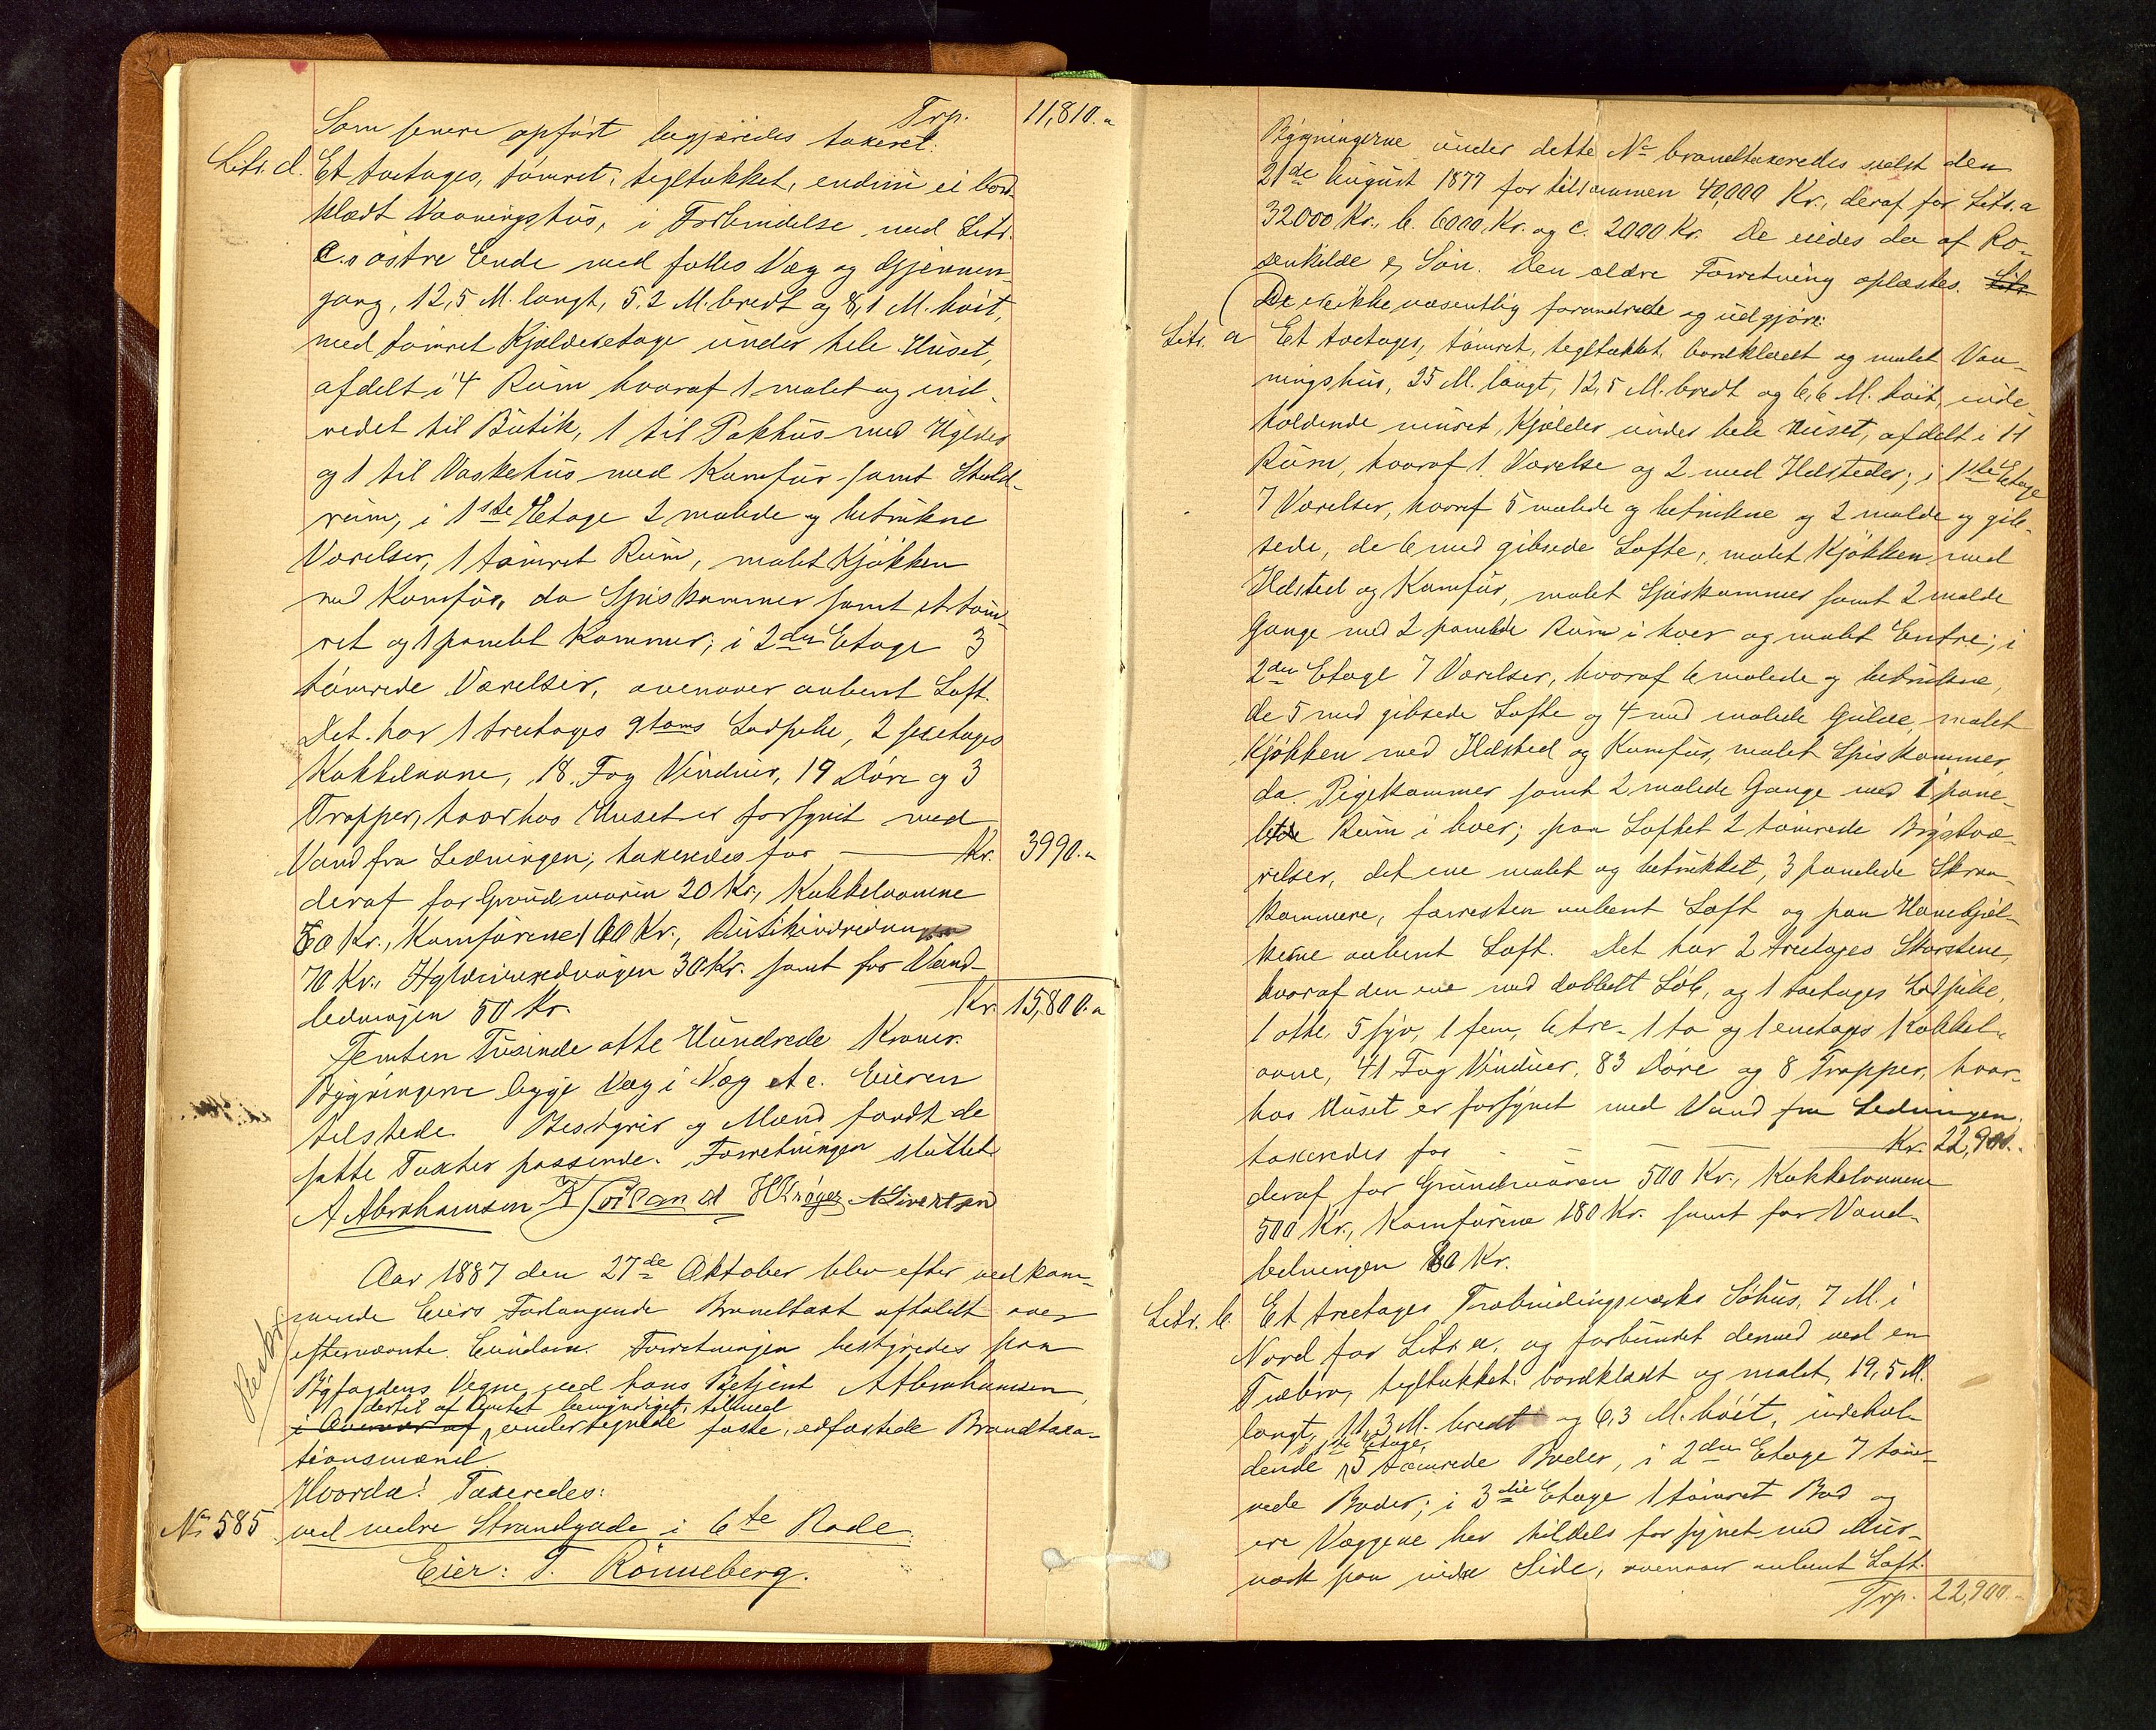 Trp. 11,810.
Som senere opført begjæredes taxeret.
Litr. d. Et toetages, tømret, tegltækket, endnu ei bord-
klædt Vaaningshus, i Forbindelse med Litr.
c.s østre Ende med fælles Væg og Gjennem-
gang, 12,5 M. langt, 5.2 M. bredt og 8,1 M. høit,
med tømret Kjælderetage under hele Huset,
afdelt i 4 Rum hvoraf 1 malet og ind-
redet til Butik, 1 til Pakhus med Hylder
og 1 til Vaskehus med Komfur samt Stald-
rum, i 1ste Etage 2 malede og betrukne
Værelser, 1 tømret Rum, malet Kjøkken
med Komfur, do Spiskammer samt et tøm-
ret og 1 panelet Kammer; i 2den Etage 3
tømrede Værelser, ovenover aabent Loft.
Det har 1 treetages 9toms Ladpibe, 2 fleretages
Kakkelovne, 18 Fag Vinduer, 19 Døre og 3
Trapper, hvorhos Huset er forsynet med
Vand fra Ledningen; taxeredes for Kr. 3990.
deraf for Grundmuren 20 Kr., Kakkelovnene
50 Kr., Komfurene 100 Kr., Butikindredningen
70 Kr., Hyldeindredningen 30 Kr. samt for Vand-
ledningen 50 Kr. Kr. 15,800.
Femten Tusinde otte Hundrede Kroner.
Bygningerne ligge Væg i Væg etc. Eieren
tilstede. Bestyrer og Mænd fandt de
satte Taxter passende. Forretningen sluttet.
A Abrahamsen H Krøger A Sivertsen
Aar 1887 den 27de Oktober blev efter vedkom-
mende Eiers Forlangende Brandtaxt afholdt over
efternævnte Eiendom. Forretningen bestyredes paa
Bygfogdens Vegne ved hans Betjent A Abrahamsen,
dertil af Amtet bemyndiget, tilmed
i Overvær af undertegnede faste, edfæstede Brandtaxa-
tionsmænd.
Hvorda! Taxeredes:
No 585 ved nedre Strandgade i 6te Rode.
Eier: T. Rønneberg.
Bygningerne under dette No brandtaxeredes sidst den
21de August 1877 for tilsammen 40,000 Kr., deraf for Litr. a
32000 Kr., b. 6000 Kr. og c. 2000 Kr. De eiedes da af Ro-
senkilde & Søn. Den ældre Forretning oplæstes. Litr.
De er ikke væsentlig forandrede og udgjøre:
Litr. a Et toetages, tømret, tegltækket, bordklædt og malet Vaa-
ningshus, 25 M. langt, 12,5 M. bredt og 6,6 M. høit, inde-
holdende muret Kjælder under hele Huset, afdelt i 11
Rum, hvoraf 1 Værelse og 2 med Ildsteder; i 1ste Etage
7 Værelser, hvoraf 5 malede og betrukne og 2 malde og gib-
sede, de 6 med gibsede Lofte, malet Kjøkken med
Ildsted og Komfur, malet Spiskammer samt 2 malde
Gange med 2 panelede Rum i hver og malet Entre; i
2den Etage 7 Værelser, hvoraf 6 malede og betrukne,
de 5 med gibsede Lofte og 4 med malede Gulve, malet
Kjøkken med Ildsted og Komfur, malet Spiskammer,
do. Pigekammer samt 2 malede Gange med 1 pane-
let Rum i hver; paa Loftet 2 tømrede Kvistvæ-
relser, det ene malet og betrukket, 3 panelede Skraa-
kammere, forresten aabent Loft og paa Hanebjæl-
kerne aabent Loft. Det har 2 treetages Skorstene,
hvoraf den ene med dobbelt Løb, og 1 toetages Ladpibe,
1 otte, 5 syv, 1 fem, 6 tre- 1 to og 1 enetages Kakkel-
ovne, 41 Fag Vinduer, 83 Døre og 8 Trapper, hvor-
hos Huset er forsynet med Vand fra Ledningen,
taxeredes for Kr. 22,900.
deraf for Grundmuren 500 Kr., Kakkelovnene
500 Kr., Komfurene 180 Kr. samt for Vand-
ledningen 80 Kr.
Litr. b. Et treetages Træbindingsværks Søhus, 7 M. i
Nord for Litr. a. og forbundet dermed ved en
Træbro, tegltækket, bordklædt og malet, 19,5 M.
langt, 11,3 M. bredt og 6,3 M. høit, indehol-
i 1ste Etage
dende 5 tømrede Boder, i 2den Etage 7 tøm-
rede Boder; i 3die Etage 1 tømret Bod og
ere Væggene her tildels forsynet med Mur-
værk paa indre Side, ovenover aabent Loft.
Trp. 22,900.